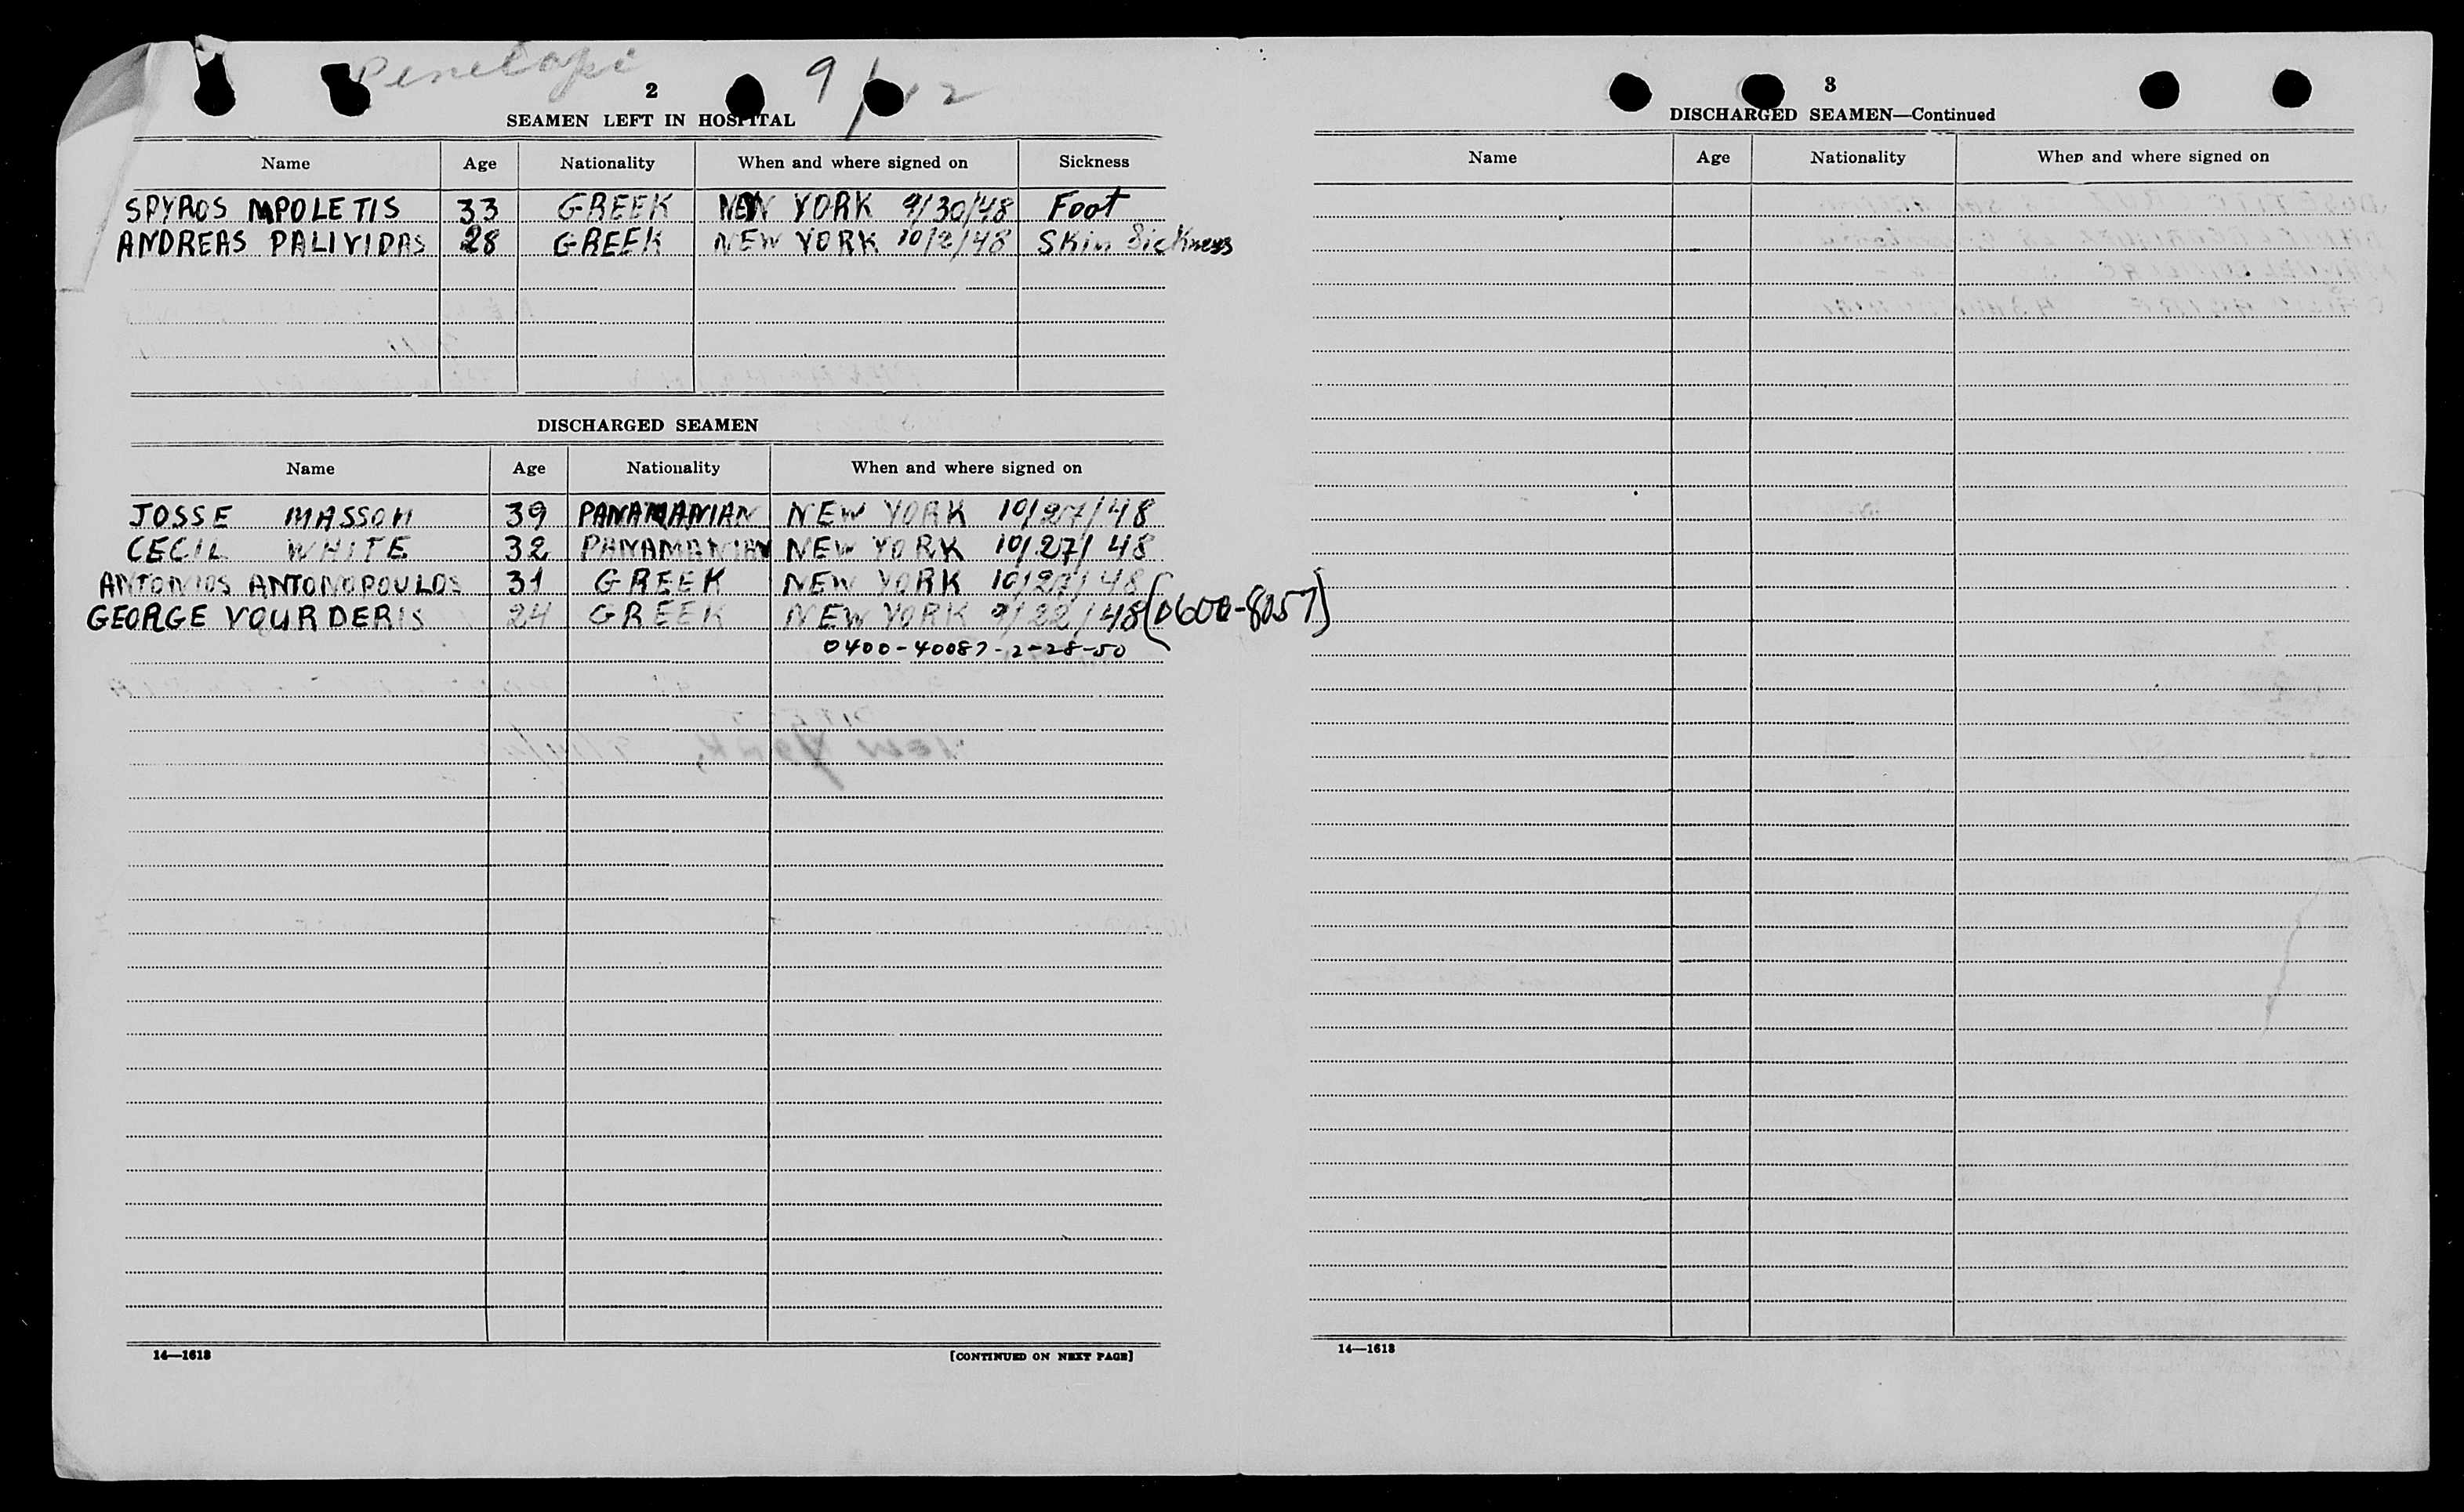 Penelopi
2
SEAMEN LEFT IN HOSPITAL
Name Age Nationality When and where signed on Sickness
SPYROS MPOLETIS 33 GREEK NEW YORK 9/30/48 Foot
ANDREAS PALIVIDAS 28 GREEK NEW YORK 10/2/48 Skin Sickness
DISCHARGED SEAMEN
Name Age Nationality When and where signed on
JOSSE MASSON 39 PANAMANIAN NEW YORK 10/27/48
CECIL WHITE 32 PANAMANIAN NEW YORK 10/27/48
ANTONIOS ANTONOPOULOS 31 GREEK NEW YORK 10/27/48
GEORGE VOURDERIS 24 GREEK NEW YORK 9/22/48
0400-40087-2-28-50
14—1613
[CONTINUED ON NEXT PAGE]
3
DISCHARGED SEAMEN—Continued
Name Age Nationality When and where signed on
14—1613